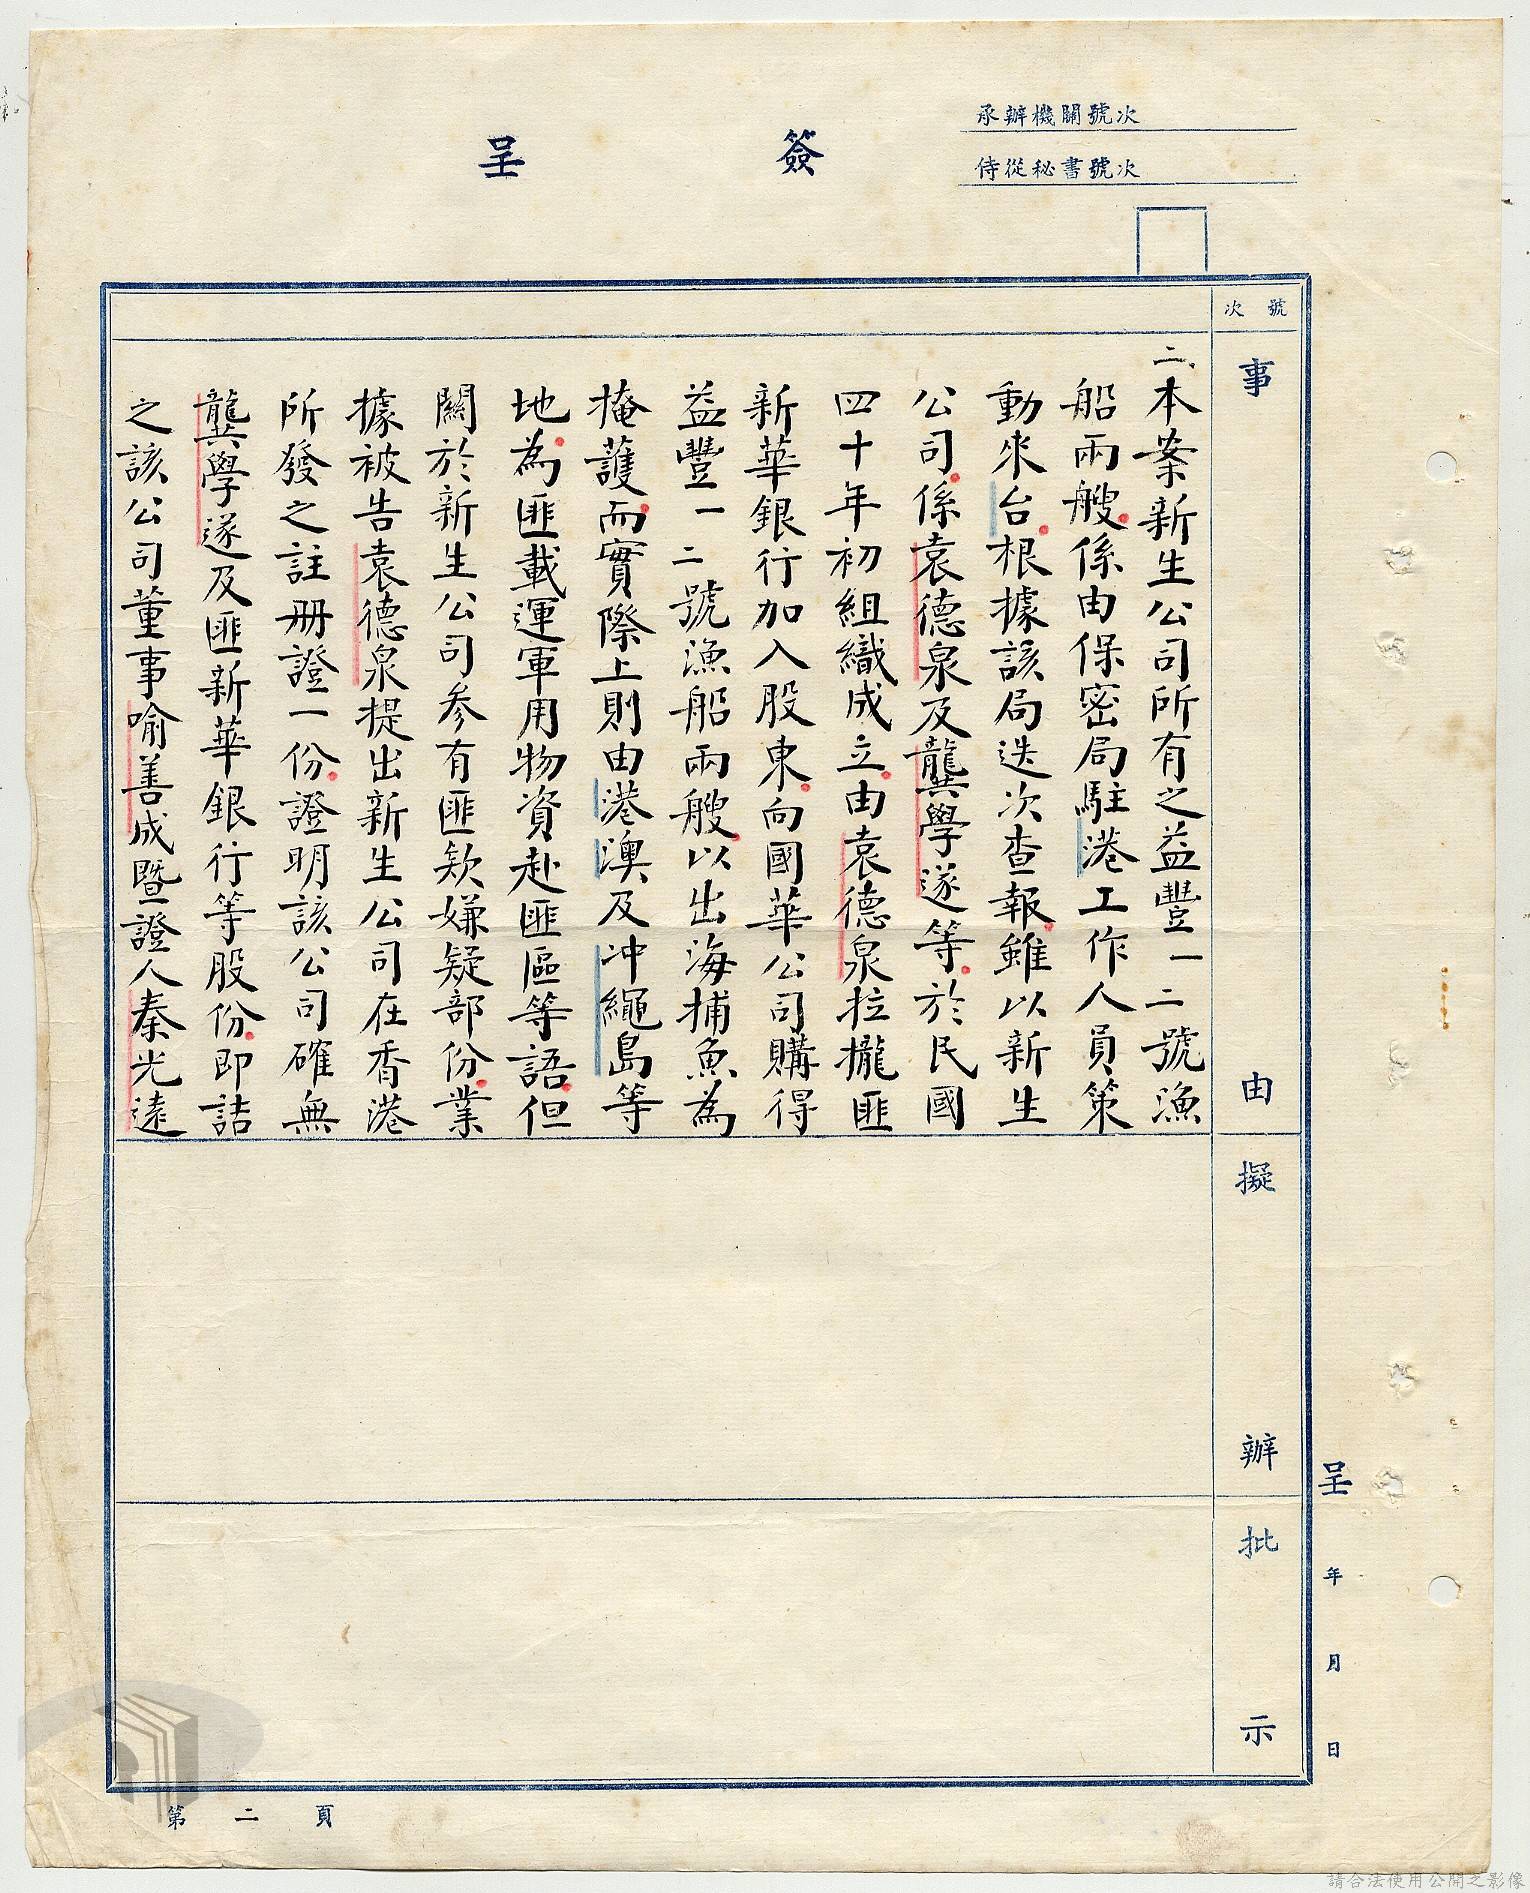 承辦機關號次
侍從秘書號次
簽呈
號次
事由
二、本案新生公司所有之益豐一二號漁
船兩艘係由保密局駐港工作人員策
動來台根據該局迭次查報雖以新生
公司係袁德泉及龔學遂等於民國
四十年初組織成立由袁德泉拉攏匪
新華銀行加入股東向國華公司購得
益豐一二號漁船兩艘以出海捕魚為
掩護而實際上則由港澳及冲繩島等
地為匪載運軍用物資赴匪區等語但
關於新生公司參有匪欵嫌疑部份業
據被告袁德泉提出新生公司在香港
所發之註册證一份證明該公司確無
龔學遂及匪新華銀行等股份即詰
之該公司董事喻善成暨證人秦光遠
擬辦
批示
呈 年 月 日
第二頁
請合法使用公開之影像